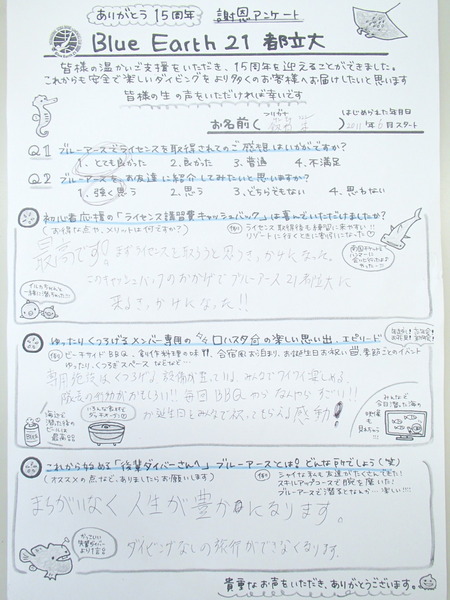 ありがとう15周年 謝恩アンケート
Blue Earth 21 都立大
皆様の温かいご支援をいただき、15周年を迎えることができました。
これからも安全で楽しいダイビングをより多くのお客様へお届けしたいと思います
皆様の生の声をいただければ幸いです
フリガナ
はじめられた年月日
お名前(
2011年6月スタート
Q1 ブルーアースでライセンスを取得されてのご感想はいかがですか?
1. とても良かった 2. 良かった 3. 普通 4. 不満足
Q2 ブルーアースを、お友達に紹介してみたいと思いますか?
1. 強く思う 2. 思う 3. どちらでもない 4. 思わない
初心者応援の「ライセンス講習費キャッシュバック」は喜んでいただけましたか?
(お得な点や、メリットは何ですか?)
例 ライセンス取得後も練習に来やすい!!
リゾートに行くときに身軽になった♡
最高です!! まずライセンスを取ろうと思うきっかけになった。
このキャッシュバックのおかげでブルーアース21都立大に
来るきっかけになった!!
ゆったりくつろげるメンバー専用の
の楽しい思い出、エピソード
例 ビーチサイドBBQ、創作料理の味!!、合宿風お泊まり、お誕生日お祝い、季節ごとのイベント
ゆったりくつろぎスペースなどなど…
専用施設はくつろげる設備が整っている。みんなでワイワイ楽しめる。
毎回BBQやらなんやらすごい!!
お誕生日をみんなで祝ってもらえる感動!
海近で
潜った後の
ビールは
最高
BEER
みんなと
今日潜った海の
映像も
これから始める「後輩ダイバーさんへ」ブルーアースとは?どんな所でしょう(笑)
(オススメの点など、ありましたらお願いします)
例 シャイな私も友達がたくさんできた!
スキルアップコースで腕を磨いた!
ブルーアースで潜るとなんか…楽しい!!!
まちがいなく人生が豊かになります。
ダイビングなしの旅行ができなくなります。
かっこいい
先輩ダイバー
より1言
貴重なお声をいただき、ありがとうございます。